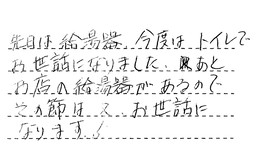 先日は給湯器、今度はトイレで
お世話になりました、あと
お店の給湯器があるので
その節は又、お世話に
なります!